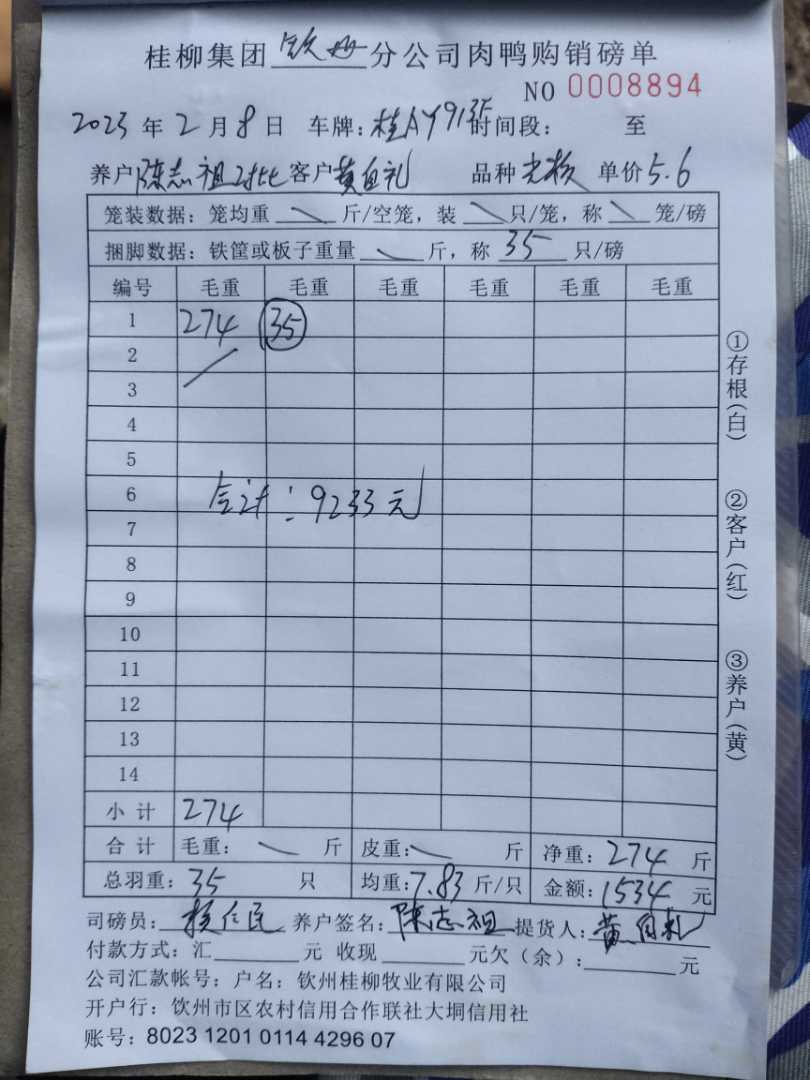 桂柳集团钦州分公司肉鸭购销磅单
NO 0008894
2023年2月8日 车牌：桂AY9135 时间段： 至
养户陈志祖 客户黄自礼 品种 单价5.6
笼装数据：笼均重 斤/空笼，装 只/笼，称 笼/磅
捆脚数据：铁筐或板子重量 斤，称 35 只/磅
编号 毛重 毛重 毛重 毛重 毛重 毛重
1 274 35
2
3
4
5
6
合计：9233元
7
8
9
10
11
12
13
14
小计 274
合计 毛重： 斤 皮重： 斤 净重：274 斤
总羽重：35 只 均重：7.83 斤/只 金额：1534 元
司磅员： 养户签名：陈志祖 提货人：黄自礼
付款方式：汇 元 收现 元欠（余）： 元
公司汇款帐号：户名：钦州桂柳牧业有限公司
开户行：钦州市区农村信用合作联社大垌信用社
账号：8023 1201 0114 4296 07
①存根（白）
②客户（红）
③养户（黄）